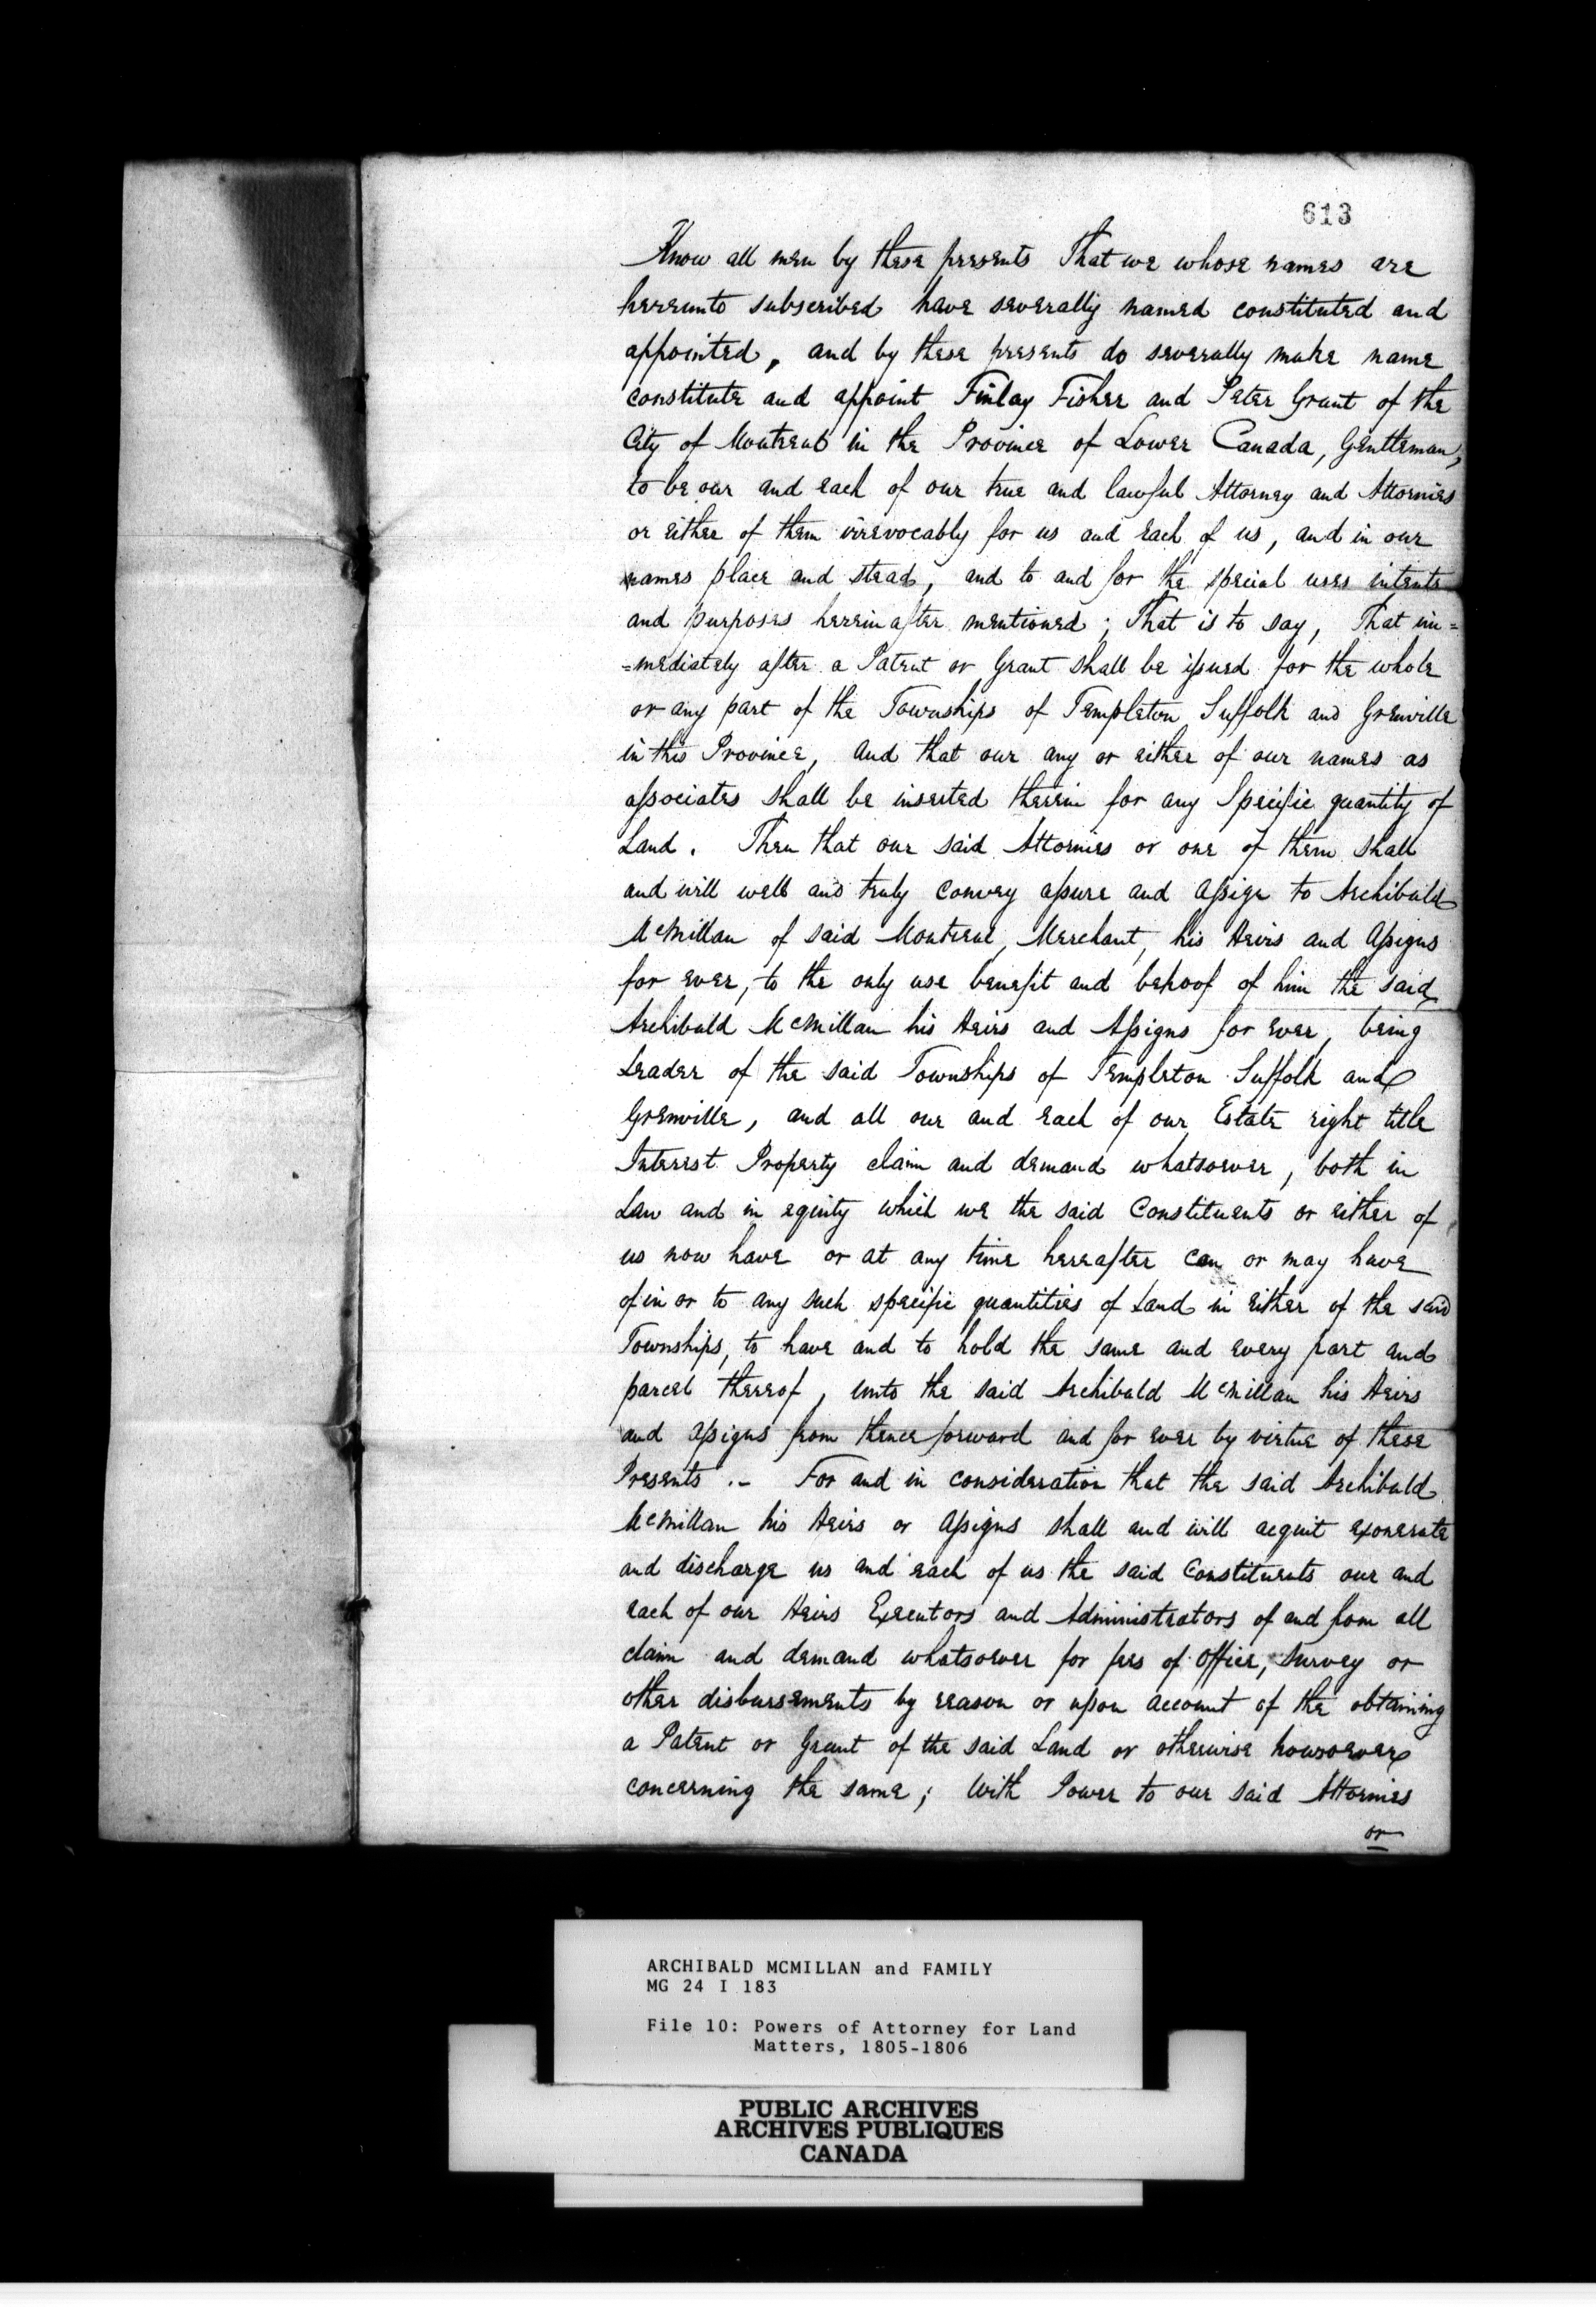 613
Know all men by these presents That we whose names are
hereunto subscribed have severally named constituted and
appointed, and by these presents do severally make name
constitute and appoint Finlay Fisher and Peter Grant of the
City of Montreal in the Province of Lower Canada, Gentleman,
to be our and each of our true and lawful Attorney and Attornies
or either of them irrevocably for us and each of us, and in our
names place and stead, and to and for the special uses intents
and purposes herein after mentioned; That is to say, That im=
=mediately after a Patent or Grant shall be issued for the whole
or any part of the Townships of Templeton Suffolk and Grenville
in this Province, and that our any or either of our names as
associates shall be inserted therein for any Specific quantity of
Land. Then that our said Attornies or one of them shall
and will well and truly convey assure and assign to Archibald
McMillan of said Montreal, Merchant, his Heirs and Assigns
for ever, to the only use benefit and behoof of him the said
Archibald McMillan his Heirs and Assigns for ever, being
Leader of the said Townships of Templeton Suffolk and
Grenville, and all our and each of our Estate right title
Interest Property claim and demand whatsoever, both in
Law and in equity which we the said Constituents or either of
us now have or at any time hereafter can or may have
of in or to any such specific quantities of Land in either of the said
Townships, to have and to hold the same and every part and
parcel thereof, unto the said Archibald McMillan his Heirs
and assigns from thence forward and for ever by virtue of these
Presents .- For and in consideration that the said Archibald
McMillan his Heirs or Assigns shall and will acquit exonerate
and discharge us and each of us the said Constituents our and
each of our Heirs Executors and Administrators of and from all
claim and demand whatsoever for fees of Office, Survey or
other disbursements by reason or upon account of the obtaining
a Patent or Grant of the said Land or otherwise howsoever
concerning the same; With Power to our said Attornies
or
ARCHIBALD MCMILLAN and FAMILY
MG 24 I 183
File 10: Powers of Attorney for Land
Matters, 1805-1806
PUBLIC ARCHIVES
ARCHIVES PUBLIQUES
CANADA